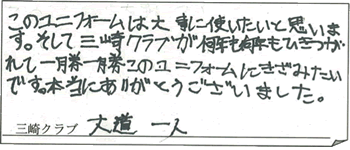 このユニフォームは大事に使いたいと思いま
す。そして三崎クラブが何年も何年もひきつが
れて一勝一勝このユニフォームにきざみたい
です。本当にありがとうございました。
三崎クラブ 大道 一人